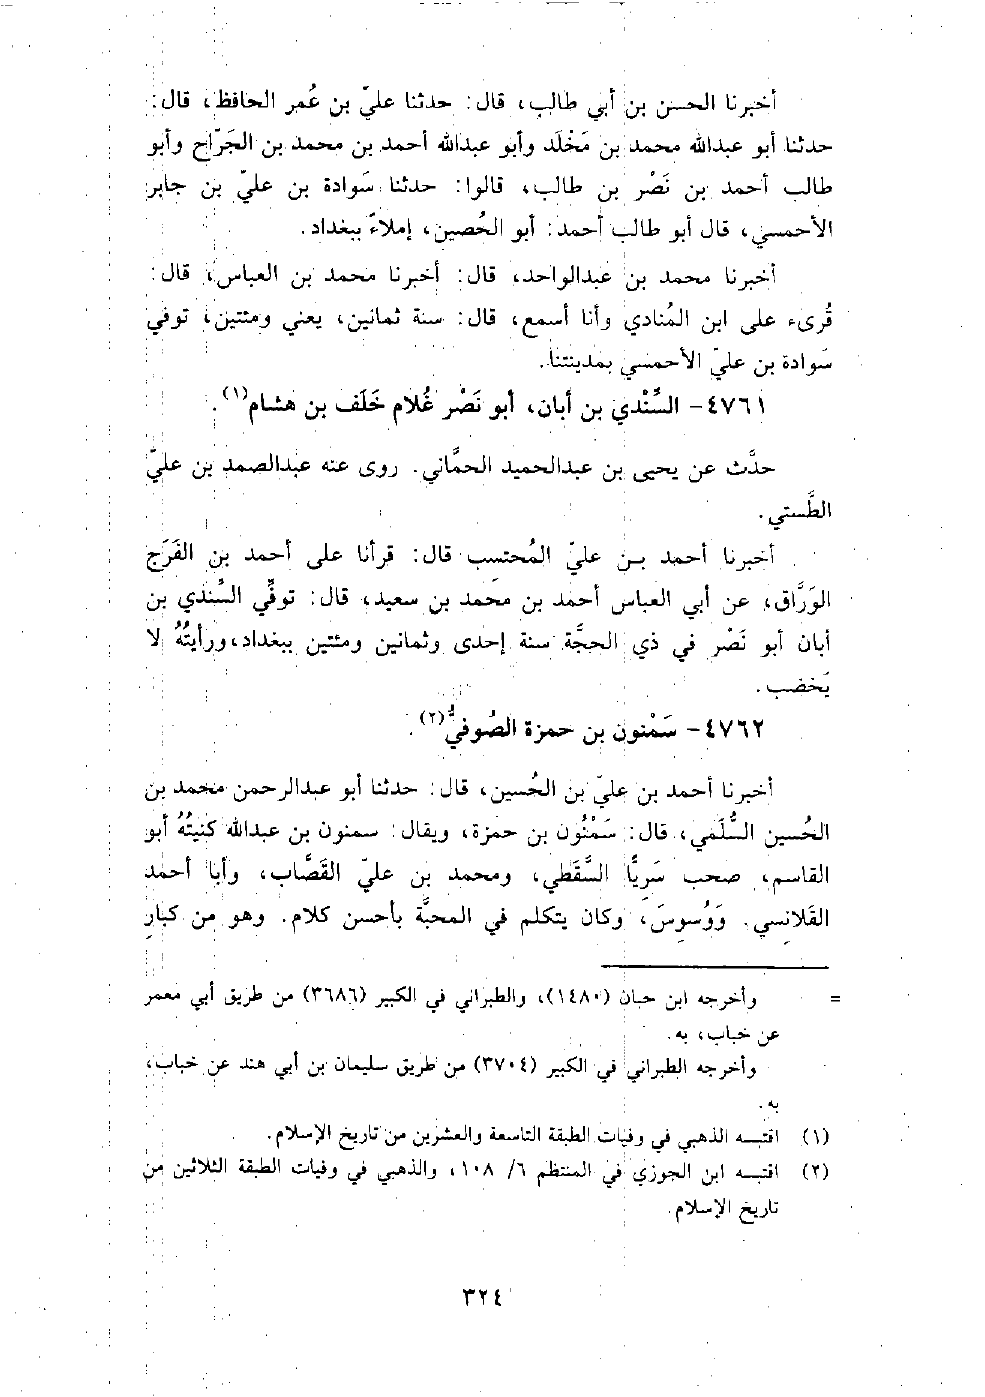 أخبرنا الحسن بن أبي طالب، قال: حدثنا عليّ بن عُمر الحافظ، قال:
حدثنا أبو عبدالله محمد بن مَخْلَد وأبو عبدالله أحمد بن محمد بن الجَرَّاح وأبو
طالب أحمد بن نَصْر بن طالب، قالوا: حدثنا سَوادة بن عليّ بن جابر
الأحمسي، قال أبو طالب أحمد: أبو الحُصين، إملاءً ببغداد.
أخبرنا محمد بن عبدالواحد، قال: أخبرنا محمد بن العباس، قال:
قُرىء على ابن المُنادي وأنا أسمع، قال: سنة ثمانين، يعني ومئتين، توفي
سَوادة بن عليّ الأحمسي بمدينتنا.
٤٧٦١- السِّنْدي بن أبان، أبو نَصْر غُلام خَلَف بن هشام(١).
حدَّث عن يحيى بن عبدالحميد الحمَّاني. روى عنه عبدالصمد بن عليّ
الطَّستي.
أخبرنا أحمد بن عليّ المُحتسب قال: قرأنا على أحمد بن الفَرَج
الوَرَّاق، عن أبي العباس أحمد بن محمد بن سعيد، قال: توفِّي السِّندي بن
أبان أبو نَصْر في ذي الحجَّة سنة إحدى وثمانين ومئتين ببغداد، ورأيتُهُ لا
يَخضب.
٤٧٦٢- سَمْنون بن حمزة الصُوفيُّ(٢).
أخبرنا أحمد بن عليّ بن الحُسين، قال: حدثنا أبو عبدالرحمن محمد بن
الحُسين السُّلَمي، قال: سَمْنُون بن حمزة، ويقال: سمنون بن عبدالله كنيتُهُ أبو
القاسم، صحب سَريًّا السَّقَطي، ومحمد بن عليّ القَصَّاب، وأبا أحمد
القَلانسي. وَوُسوِسَ، وكان يتكلم في المحبَّة بأحسن كلام. وهو من كبار
= وأخرجه ابن حبان (١٤٨٠)، والطبراني في الكبير (٣٦٨٦) من طريق أبي معمر
عن خباب، به.
وأخرجه الطبراني في الكبير (٣٧٠٤) من طريق سليمان بن أبي هند عن خباب،
به.
(١) اقتبسه الذهبي في وفيات الطبقة التاسعة والعشرين من تاريخ الإسلام.
(٢) اقتبسه ابن الجوزي في المنتظم ٦/ ١٠٨، والذهبي في وفيات الطبقة الثلاثين من
تاريخ الإسلام.
٣٢٤